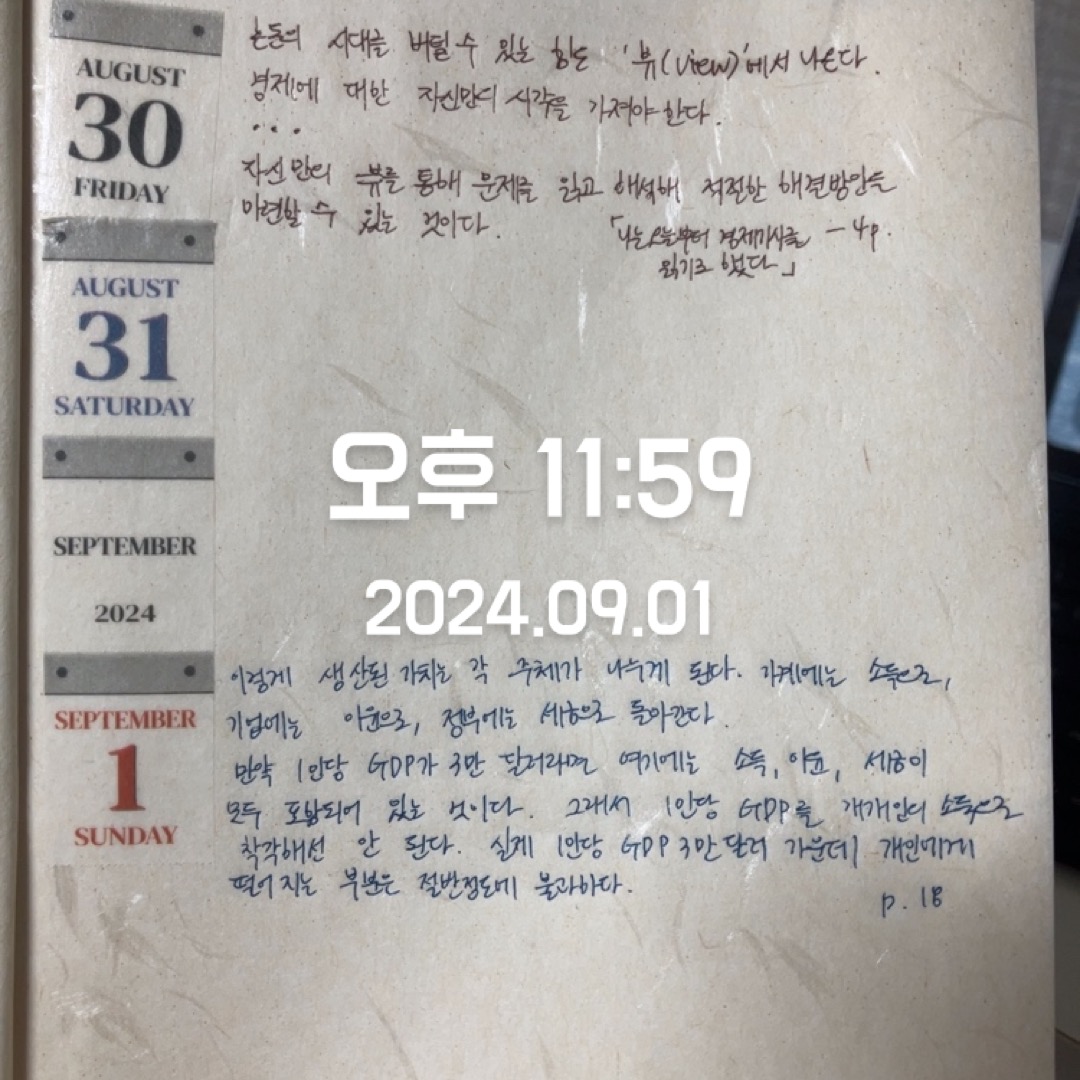 AUGUST
30
FRIDAY
혼돈의 시대를 버틸 수 있는 힘은 '뷰(view)'에서 나온다.
경제에 대한 자신만의 시각을 가져야 한다.
...
자신만의 뷰를 통해 문제를 읽고 해석해 적절한 해결방안을
마련할 수 있는 것이다.
「나는 오늘부터 경제기사를 - 4p.
읽기로 했다」
AUGUST
31
SATURDAY
오후 11:59
SEPTEMBER
2024
2024.09.01
SEPTEMBER
1
SUNDAY
이렇게 생산된 가치는 각 주체가 나누게 된다. 가계에는 소득으로,
기업에는 이윤으로, 정부에는 세금으로 돌아간다.
만약 1인당 GDP가 3만 달러라면 여기에는 소득, 이윤, 세금이
모두 포함되어 있는 것이다. 그래서 1인당 GDP를 개개인의 소득으로
착각해선 안 된다. 실제 1인당 GDP 3만 달러 가운데 개인에게
떨어지는 부분은 절반정도에 불과하다.
p. 18